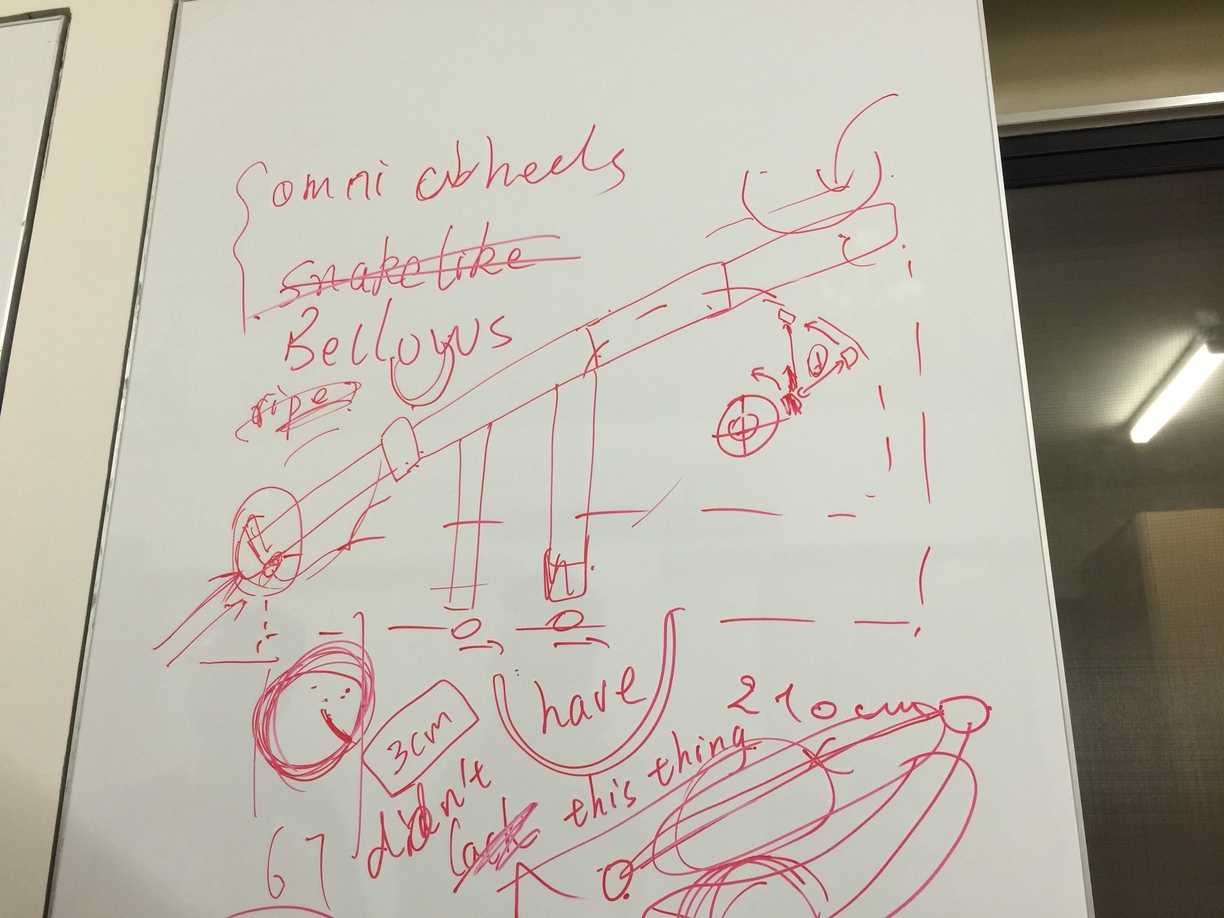 omni wheels
snakelike
Bellows
ripe
have
3cm
210cm
didn't this thing
67